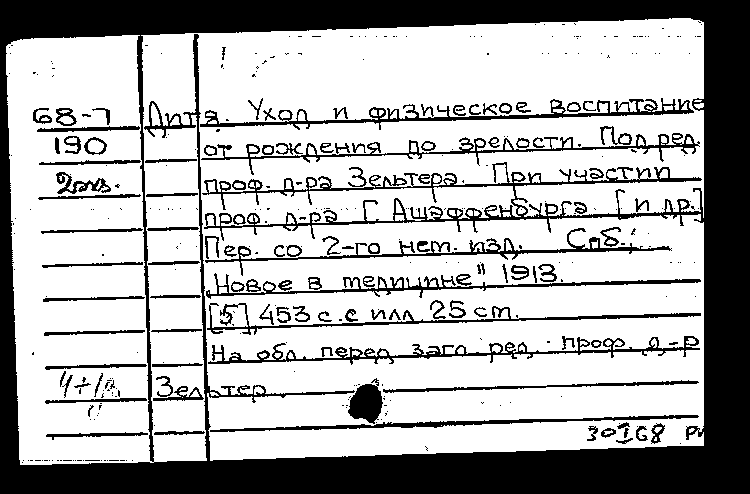 68-7 Дитя. Уход и физическое воспитание
190 от рождения до зрелости. Под ред.
2 экз. проф. д-ра Зельтера. При участии
проф. д-ра Г. Ашаффенбурга [и др.]
Пер. со 2-го нем. изд. Спб.,
"Новое в медицине", 1913.
[5], 453 с. с илл. 25 см.
На обл. перед загл. ред.: проф. д-р
Зельтер.
30168